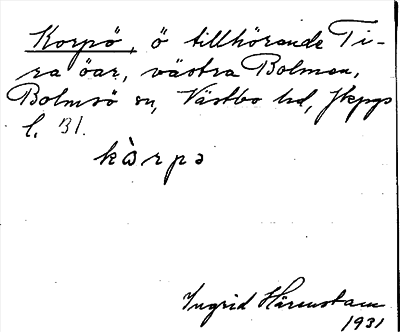 Korpö, ö tillhörande Ti-
ra öar, västra Bolmen,
Bolmsö sn, Västbo hd, Jkpgs
l. Bl.
kàrpə
Ingrid Härenstam
1931